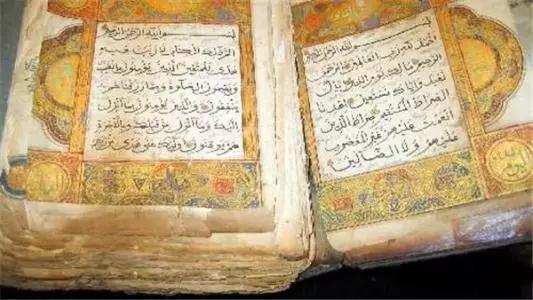 بسم الله الرحمن الرحيم
الحمد لله رب العالمين الرحمن
الرحيم مالك يوم الدين اياك
نعبد واياك نستعين اهدنا
الصراط المستقيم صراط الذين
انعمت عليهم غير المغضوب
عليهم ولا الضالين
بسم الله الرحمن الرحيم
الم ذلك الكتاب لا ريب فيه
هدى للمتقين الذين يؤمنون بالغيب
ويقيمون الصلوة ومما رزقناهم
ينفقون والذين يؤمنون بما انزل
اليك وما انزل من قبلك وبالآخرة
هم يوقنون اولئك على هدى من